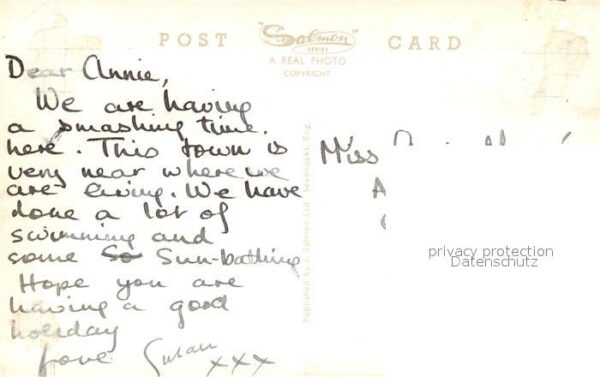 POST "Salmon" CARD
SERIES
A REAL PHOTO
COPYRIGHT
Dear Annie,
We are having
a smashing time.
here. This town is
very near where we
are living. We have
done a lot of
swimming and
some So Sun-bathing
Hope you are
having a good
holiday
Love Susan
xxx
Published by J. Salmon Ltd., Sevenoaks, Eng.
Miss
privacy protection
Datenschutz